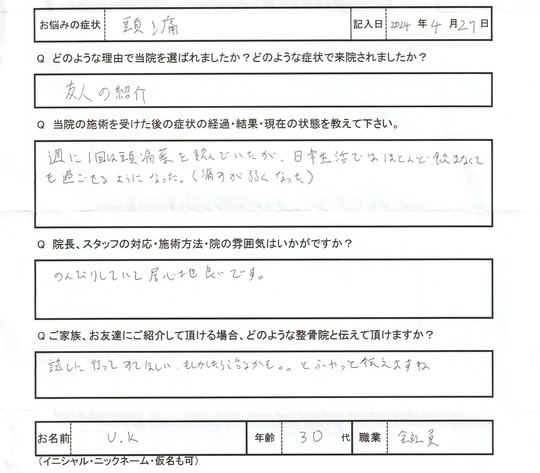 お悩みの症状 頭痛 記入日 2024 年 4 月 27 日
Q どのような理由で当院を選ばれましたか？どのような症状で来院されましたか？
友人の紹介
Q 当院の施術を受けた後の症状の経過・結果・現在の状態を教えて下さい。
週に1回は頭痛薬を飲んでいたが、日常生活ではほとんど飲まなくて
も過ごせるようになった。(痛すが弱くなった)
Q 院長、スタッフの対応・施術方法・院の雰囲気はいかがですか？
のんびりしていて居心地良いです。
Q ご家族、お友達にご紹介して頂ける場合、どのような整骨院と伝えて頂けますか？
試しに行ってみてほしい、もしかしたら治るかも。。とふわっと伝えますね
お名前 U.K 年齢 30 代 職業 会社員
(イニシャル・ニックネーム・仮名も可)